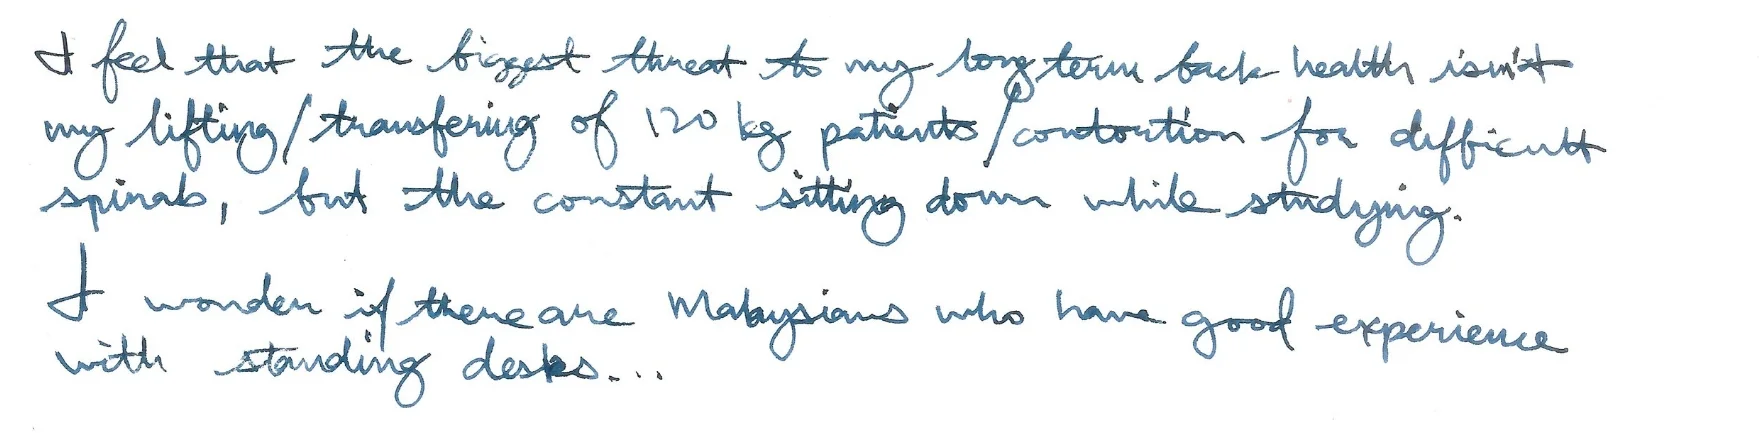 I feel that the biggest threat to my long term back health isn't
my lifting/transfering of 120 kg patients/contortion for difficult
spinals, but the constant sitting down while studying.
I wonder if there are Malaysians who have good experience
with standing desks...